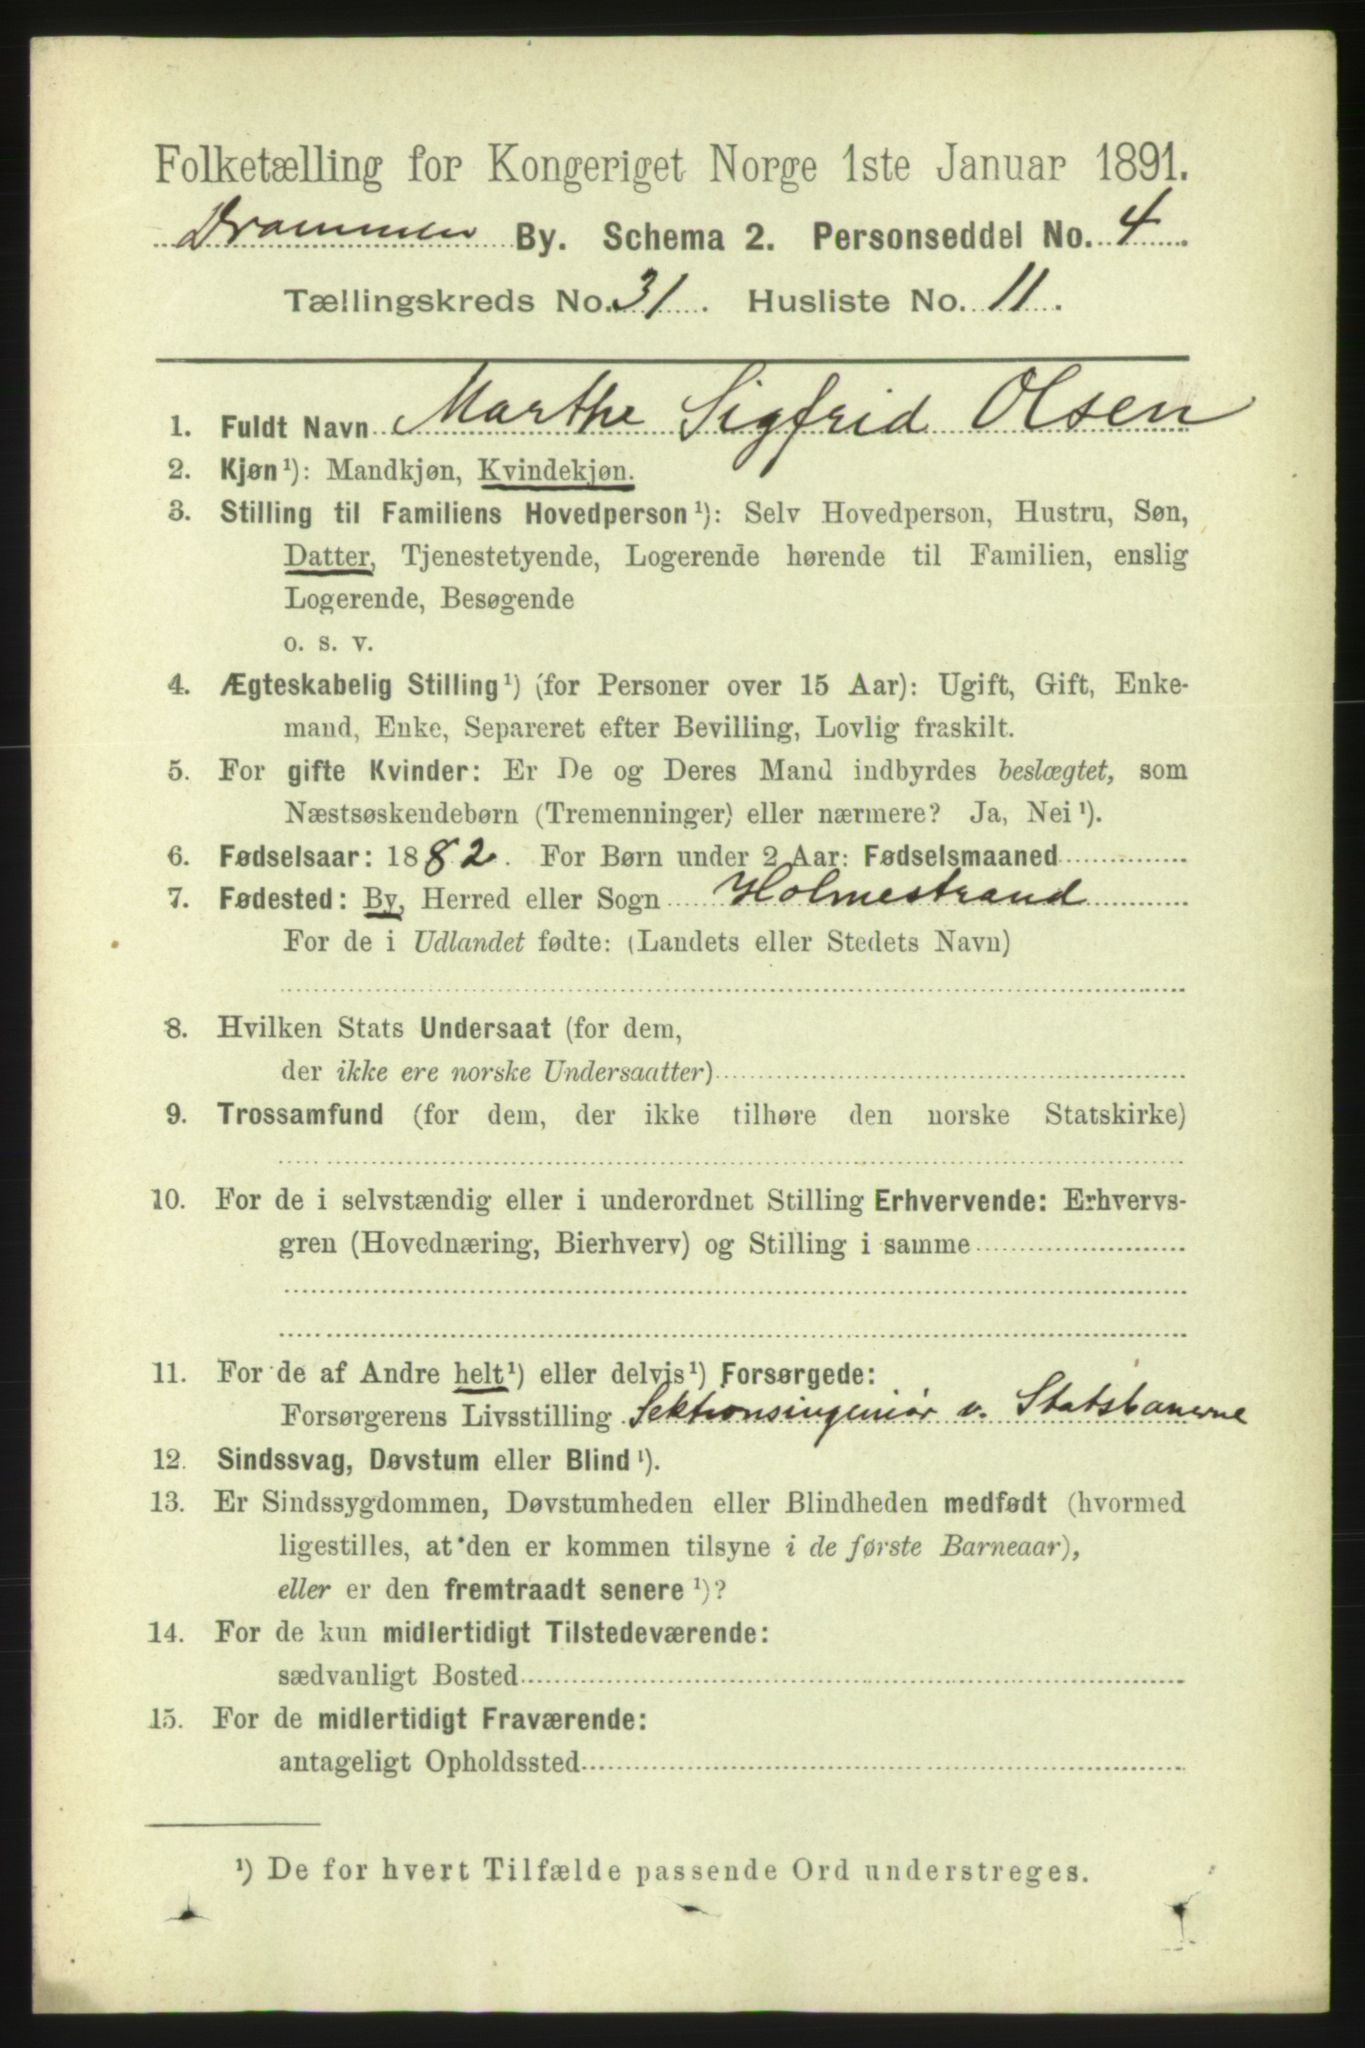 Folketælling for Kongeriget Norge 1ste Januar 1891.
Drammen By. Schema 2. Personseddel No. 4
Tællingskreds No. 31. Husliste No. 11.
1. Fuldt Navn Marthe Sigfrid Olsen
2. Kjøn¹): Mandkjøn, Kvindekjøn.
3. Stilling til Familiens Hovedperson¹): Selv Hovedperson, Hustru, Søn,
Datter, Tjenestetyende, Logerende hørende til Familien, enslig
Logerende, Besøgende
o. s. v.
4. Ægteskabelig Stilling¹) (for Personer over 15 Aar): Ugift, Gift, Enke-
mand, Enke, Separeret efter Bevilling, Lovlig fraskilt.
5. For gifte Kvinder: Er De og Deres Mand indbyrdes beslægtet, som
Næstsøskendebørn (Tremenninger) eller nærmere? Ja, Nei¹).
6. Fødselsaar: 1882. For Børn under 2 Aar: Fødselsmaaned
7. Fødested: By, Herred eller Sogn Holmestrand
For de i Udlandet fødte: (Landets eller Stedets Navn)
8. Hvilken Stats Undersaat (for dem,
der ikke ere norske Undersaatter)
9. Trossamfund (for dem, der ikke tilhøre den norske Statskirke)
10. For de i selvstændig eller i underordnet Stilling Erhvervende: Erhvervs-
gren (Hovednæring, Bierhverv) og Stilling i samme
11. For de af Andre helt¹) eller delvis¹) Forsørgede:
Forsørgerens Livsstilling Sektionsingeniør v. Statsbanerne
12. Sindssvag, Døvstum eller Blind¹).
13. Er Sindssygdommen, Døvstumheden eller Blindheden medfødt (hvormed
ligestilles, at den er kommen tilsyne i de første Barneaar),
eller er den fremtraadt senere¹)?
14. For de kun midlertidigt Tilstedeværende:
sædvanligt Bosted
15. For de midlertidigt Fraværende:
antageligt Opholdssted
¹) De for hvert Tilfælde passende Ord understreges.